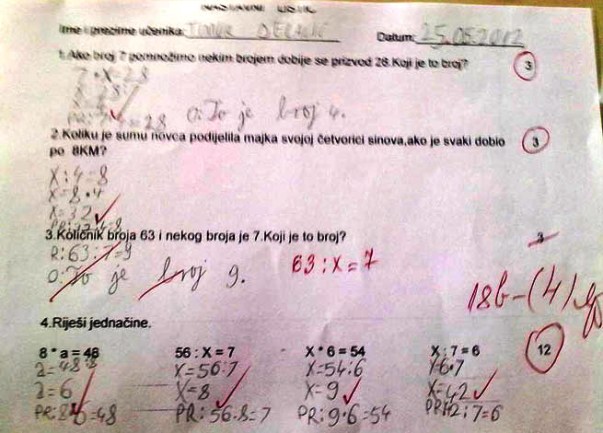 NASTAVNI LISTIĆ
Ime i prezime učenika: TIMUR Datum: 25.05.2012
1.Ako broj 7 pomnožimo nekim brojem dobije se prizvod 28.Koji je to broj? 3
7 * X = 28
X = 28 : 7
X = 4
PR: 7 * 4 = 28 O: To je broj 4.
2.Koliku je sumu novca podijelila majka svojoj četvorici sinova,ako je svaki dobio 3
po 8KM?
X : 4 = 8
X = 8 * 4
X = 32
PR: 32 : 4 = 8
3.Količnik broja 63 i nekog broja je 7.Koji je to broj? 3
R: 63 : 7 = 9 63 : X = 7
O: To je broj 9.
18b - (4)
4.Riješi jednačine.
8 * a = 48 56 : X = 7 X * 6 = 54 X : 7 = 6 12
a = 48 : 8 X = 56 : 7 X = 54 : 6 X = 6 * 7
a = 6 X = 8 X = 9 X = 42
PR: 8 * 6 = 48 PR: 56 : 8 = 7 PR: 9 * 6 = 54 PR: 42 : 7 = 6